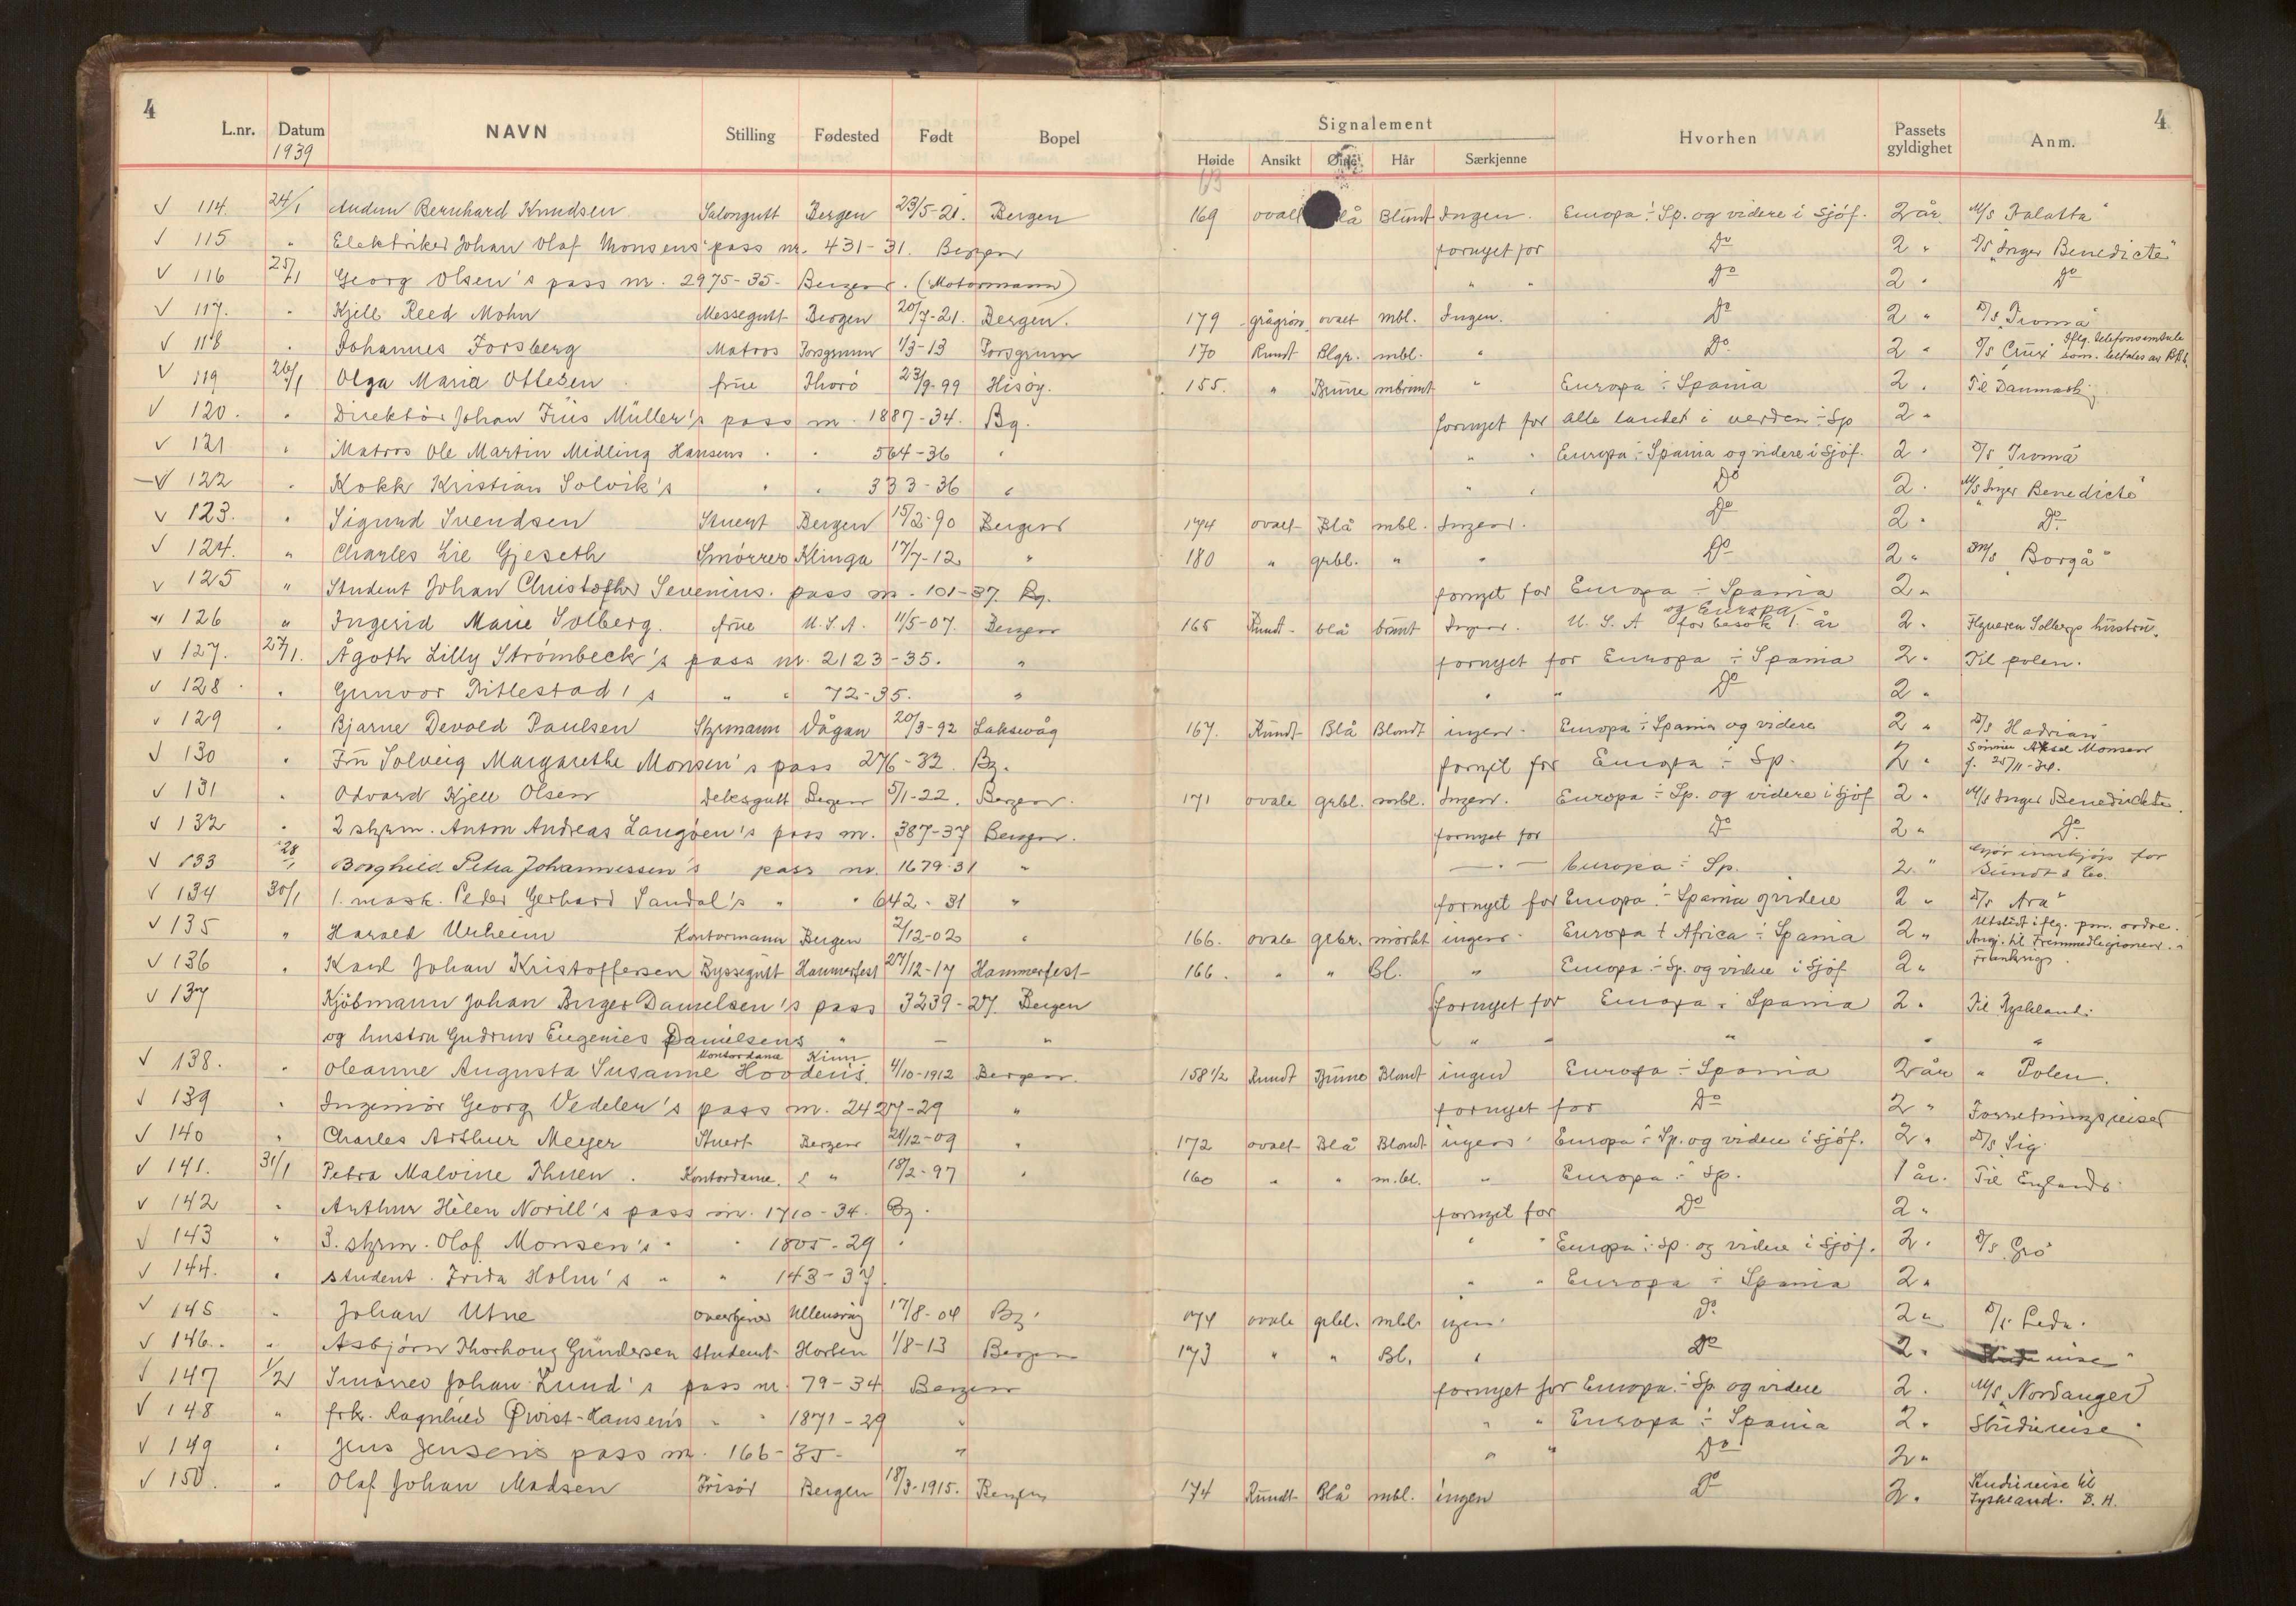 4
L.nr. Datum NAVN Stilling Fødested Født Bopel Signalement Hvorhen Passets gyldighet Anm. 4
1939 Høide Ansikt Øine Hår Særkjenne
63
√ 114. 24/1 Audun Bernhard Knudsen Salongutt Bergen 23/5-21. Bergen 169 ovalt Blå Blondt Ingen. Europa ÷ Sp. og videre i Sjöf. 2 år M/S "Talatta"
√ 115 " Elektriker Johan Olaf Monsens pass nr. 431-31. Bergen fornyet for Do 2 " D/S "Inger Benedicte"
√ 116 25/1 Georg Olsen's pass nr. 2975-35- Bergen. (Motormann) " " Do 2 " Do
√ 117. " Kjell Reed Mohn Messegutt Bergen 20/7-21. Bergen. 179 grågrön ovalt mbl. Ingen. Do 2 " D/S "Tromå"
√ 118 " Johannes Forsberg Matros Porsgrunn 1/3-13 Porsgrunn 170 Rundt Blgr. mbl. " Do 2 " D/S "Crux" Iflg. telefonsamtale
√ 119 26/1 Olga Maria Ottesen frue Thorö 23/9-99 Hisöy. 155. " Brune mbrunt " Europa ÷ Spania 2 " Til Danmark
√ 120. " Direktör Johan Friis Müller's pass nr. 1887-34. Bg. fornyet for alle landet i verden ÷ Sp 2 "
√ 121 " Matros Ole Martin Midling Hansens " " 564-36 " " " Europa ÷ Spania og videre i Sjöf. 2 " D/S "Tromå"
√ 122 " Kokk Kristian Solvik's " " 333-36 " " " Do 2 " M/S Inger Benedicte"
√ 123. " Sigurd Svendsen Stuert Bergen 15/2-90 Bergen 174 ovalt Blå mbl. Ingen. Do 2 " Do
√ 124. " Charles Lie Gjeseth Smörrer Klinga 17/7-12 " 180 " grbl. " " Do 2 " M/S "Borgå"
√ 125 " Student Johan Christopher Sevenius. pass nr. 101-37. Bg. fornyet for Europa ÷ Spania 2 "
√ 126 " Ingerid Marie Solberg. frue U.S.A. 11/5-07. Bergen 165 Rundt blå brunt Ingen. U.S.A og Europa for besøk 1. år 2 " Solbergs hustru.
√ 127. 27/1. Ågoth Lilly Strömbeck's pass nr. 2123-35. " fornyet for Europa ÷ Spania 2 " Til polen.
√ 128 " Gunvor Tillestad's " " 72-35. " " " Do 2 "
√ 129 " Bjarne Devold Paulsen Styrmann Vågan 20/3-92 Laksevåg 167. Rundt Blå Blondt ingen. Europa ÷ Spania og videre 2 " D/S Hadrian"
√ 130 " Fru Solveig Margarethe Monsen's pass 276-32. Bg. fornyet for Europa ÷ Sp. 2 " Sönnen Aksel Monsen f. 25/11-34.
√ 131 " Odvard Kjell Olsen Dekksgutt Bergen 5/1-22. Bergen. 171 ovale grbl. mbl. Ingen. Europa ÷ Sp. og videre i Sjöf 2 " M/S Inger Benedickte
√ 132 " 2 styrm. Anton Andreas Langöen's pass nr. 387-37 Bergen. fornyet for Do 2 " Do
√ 133 28/1 Borghild Petra Johannessen's pass nr. 1679-31 " — " — Europa ÷ Sp. 2 " Gjør innkjøp for Sundt & Co.
√ 134 30/1 1. mask. Peder Gerhard Sandal's " " 642-31 " fornyet for Europa ÷ Spania og videre 2 " D/S Ara"
√ 135 " Harald Urheim Kontormann Bergen 2/12-02 " 166. ovale grbr. mörkt ingen. Europa + Africa ÷ Spania 2 " Utstedt iflg. pm. ordre. Ang. til Fremmedlegionen i Frankrige.
√ 136 " Karl Johan Kristoffersen Byssegutt Hammerfest 27/12-17 Hammerfest 166. " " Bl. " Europa ÷ Sp. og videre i Sjöf 2 "
√ 137 Kjöbmann Johan Birger Danielsen's pass 3239-27. Bergen fornyet for Europa ÷ Spania 2 " Til Tyskland.
og hustru Gudruns Eugenies Danielsens " — " " " " " "
√ 138. " Oleanne Augusta Susanne Hoodens. Kontordame Kinn 4/10-1912 Bergen. 158 1/2 Rundt Brune Blondt ingen Europa ÷ Spania 2 år " Polen.
√ 139 " Ingeniör Georg Vedeler's pass nr. 2427-29 " fornyet for Do 2 " Forretningsreiser
√ 140 " Charles Arthur Meyer Stuert Bergen 21/12-09 " 172 ovalt Blå Blondt ingen Europa ÷ Sp. og videre i sjöf. 2 " D/S "Sig
√ 141. 31/1 Petra Malvine Thuen. Kontordame. " 18/2-97 " 160 " " m.bl. " Europa ÷ Sp. 1 år. Til England
√ 142 " Arthur Hélen Norill's pass nr. 1710-34. Bg. fornyet for Do 2 "
√ 143 " 3. styrm. Olaf Monsen's " " 1805-29 " " " Europa ÷ Sp. og videre i Sjöf. 2 " D/S "Gro"
√ 144. " student. Frida Holm's " " 143-37. " " Europa ÷ Spania 2 "
√ 145 " Johan Utne Ullensvang 17/8-04 Bg. 174 ovale grbl. mbl. ingen. Do 2 " D/S Leda.
√ 146. " Asbjörn Thorhoug Gundersen student Horten 1/8-13 Bergen 173 " " Bl. " Do 2 "
√ 147 1/2 Smörrer Johan Lund's pass nr. 79-34 Bergen fornyet for Europa ÷ Sp. og videre 2 " M/S "Nordanger"
√ 148 " frk. Ragnhild Qvist-Hansens " " 1871-29 " " " Europa ÷ Spania 2 " Studiereise
√ 149 " Jens Jensens pass nr. 166-35- " " " Do 2 "
√ 150. " Olaf Johan Madsen Frisör Bergen 18/3-1915. Bergen 174 Rundt Blå mbl. ingen Do 2 " Studiereise til Tyskland. B.H.